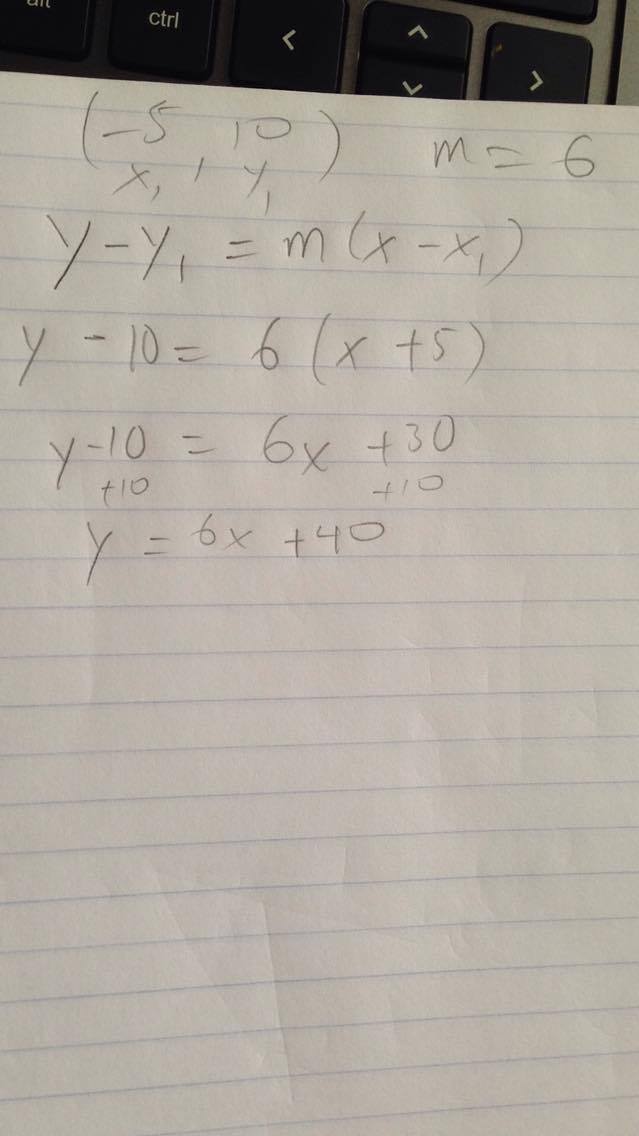 alt
ctrl
< ^ >
(-5, 10) m = 6
x₁, y₁
y - y₁ = m(x - x₁)
y - 10 = 6(x + 5)
y - 10 = 6x + 30
+10 +10
y = 6x + 40